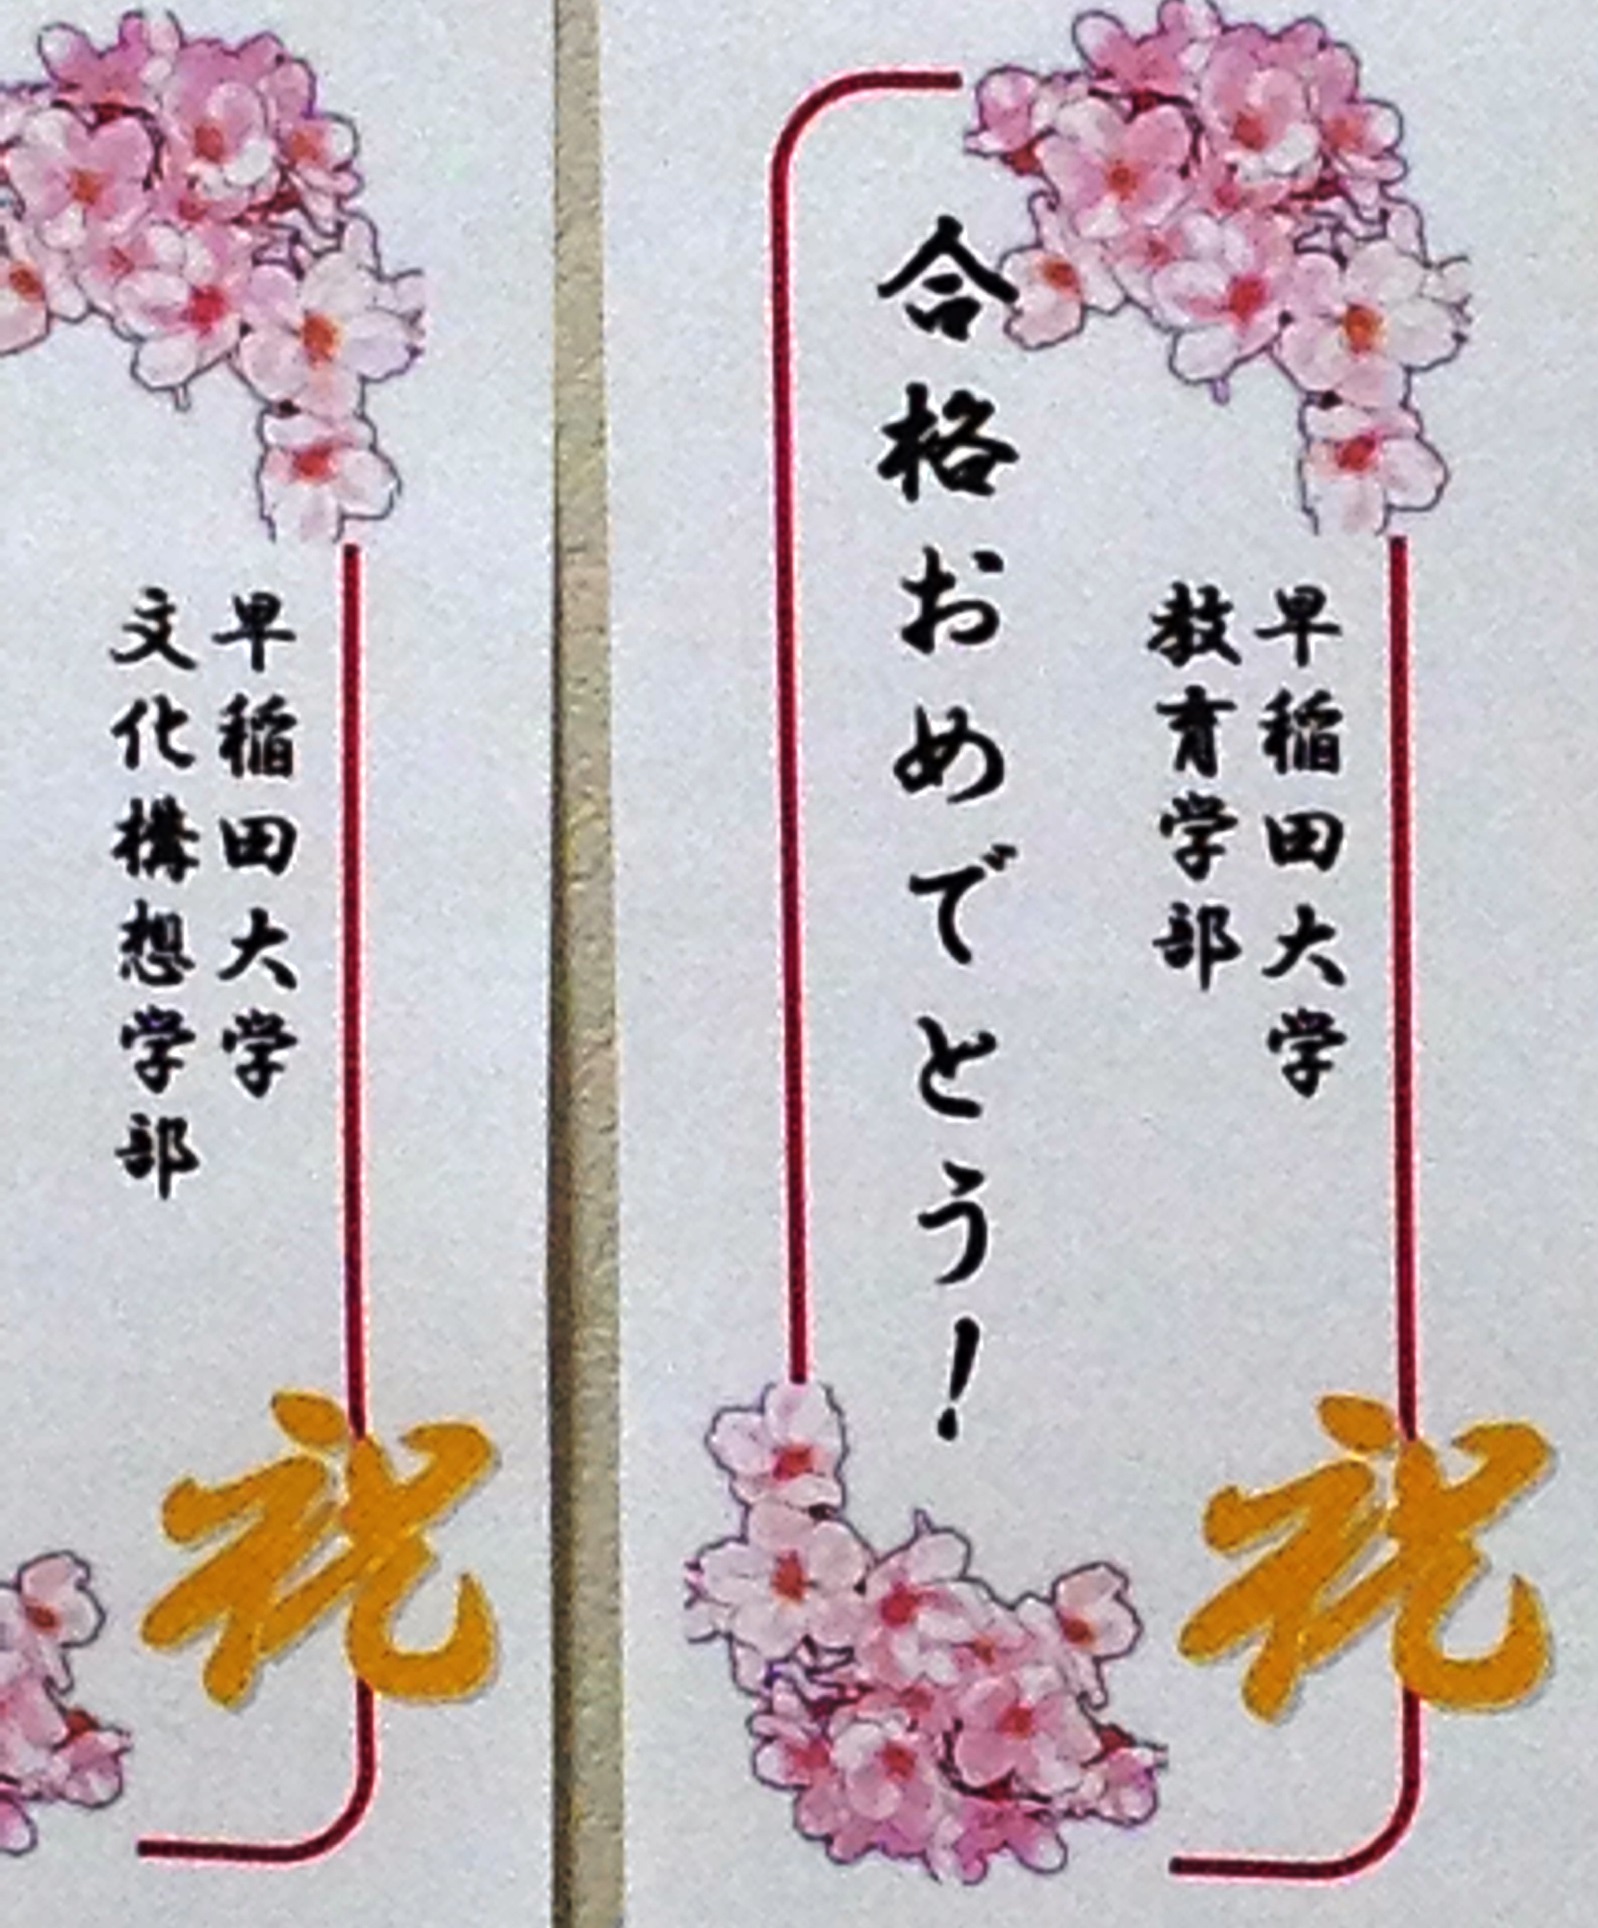 早稲田大学
教育学部
合格おめでとう!
祝
早稲田大学
文化構想学部
祝